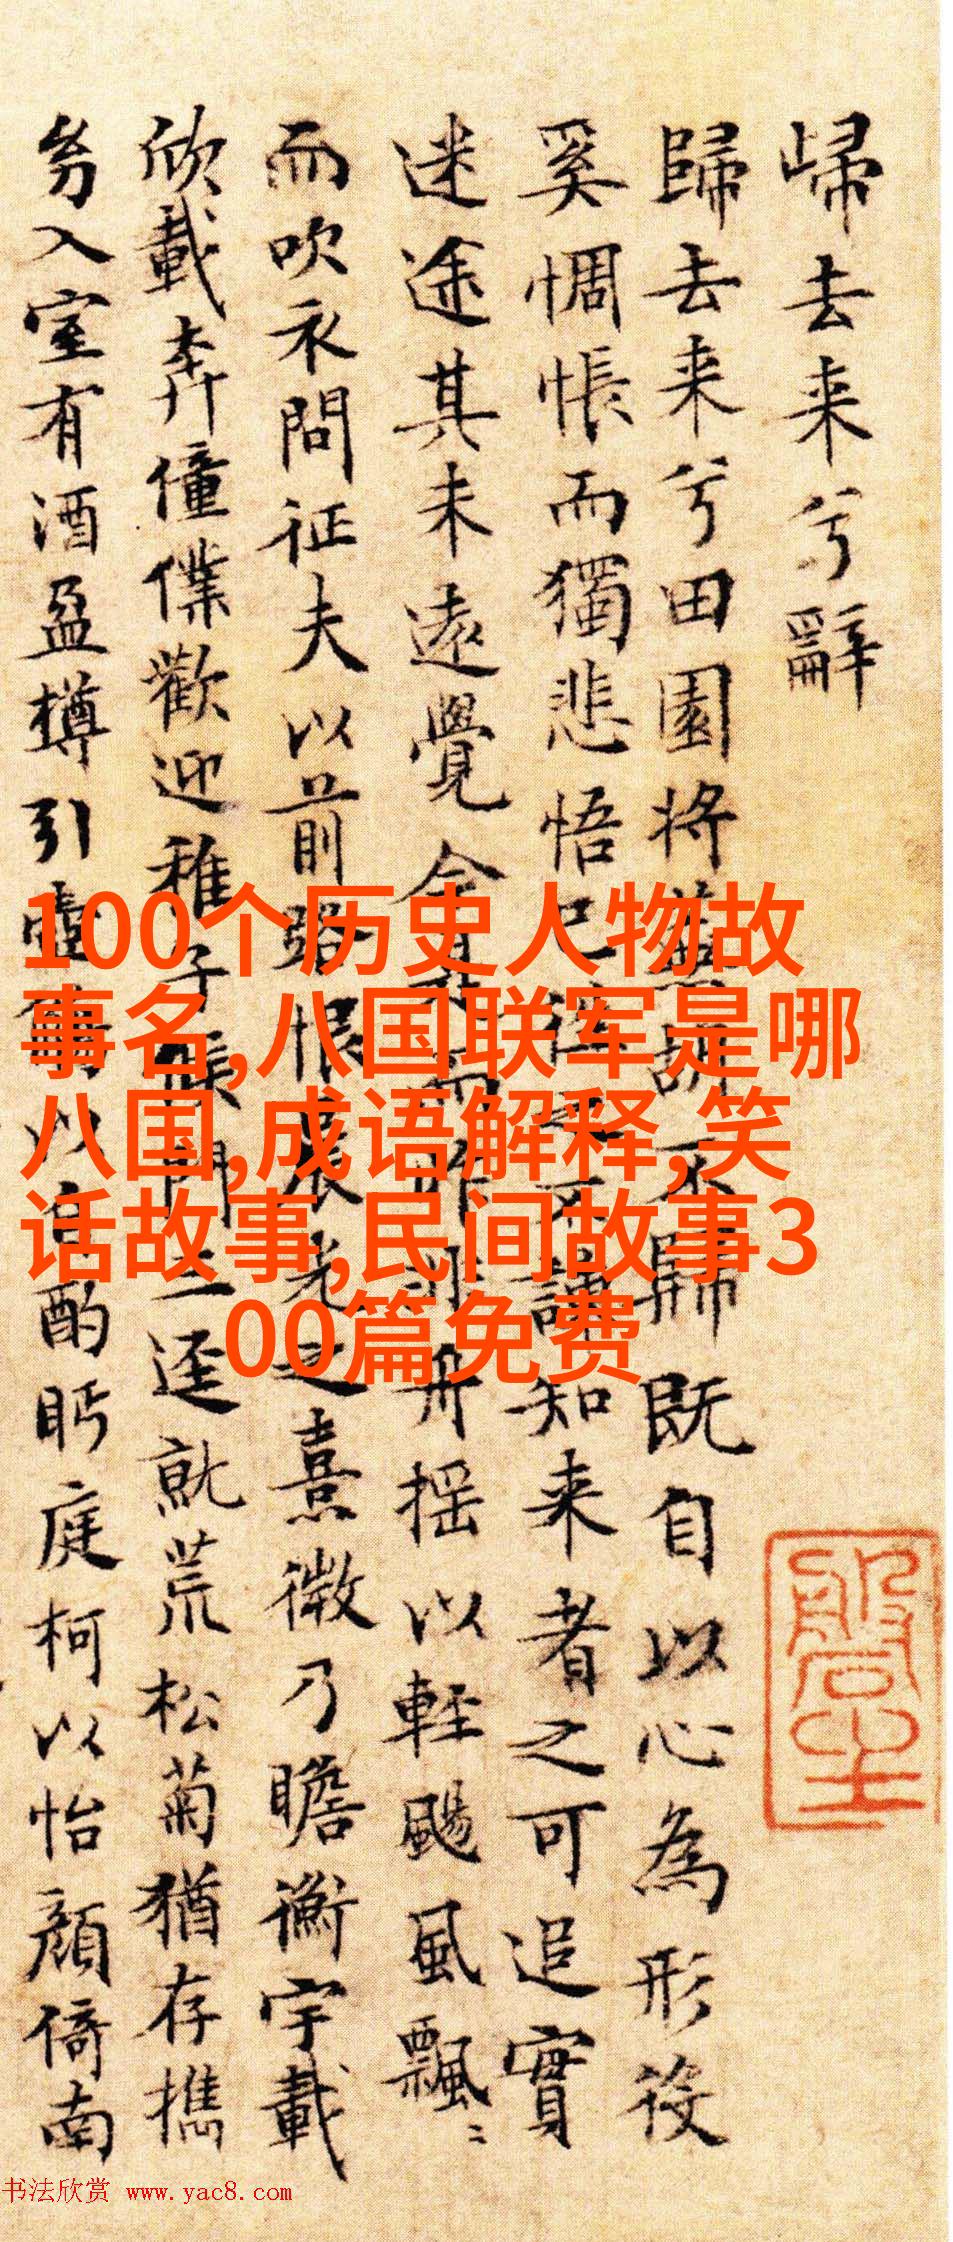 歸去来兮辭
歸去来兮田園将蕪胡不歸既自以心為形役
奚惆悵而獨悲悟已往之不諫知来者之可追實
迷途其未遠覺今是而昨非舟揺以軽颺風飄〻
而吹衣問征夫以前路恨晨光之熹微乃瞻衡宇載
欣載奔僮僕歡迎稚子候門三逕就荒松菊猶存攜
幼入室有酒盈樽引壺觴以自酌眄庭柯以怡顔倚南
100个历史人物故
事名,八国联军是哪
八国,成语解释,笑
话故事,民间故事3
00篇免费
书法欣赏 www.yac8.com